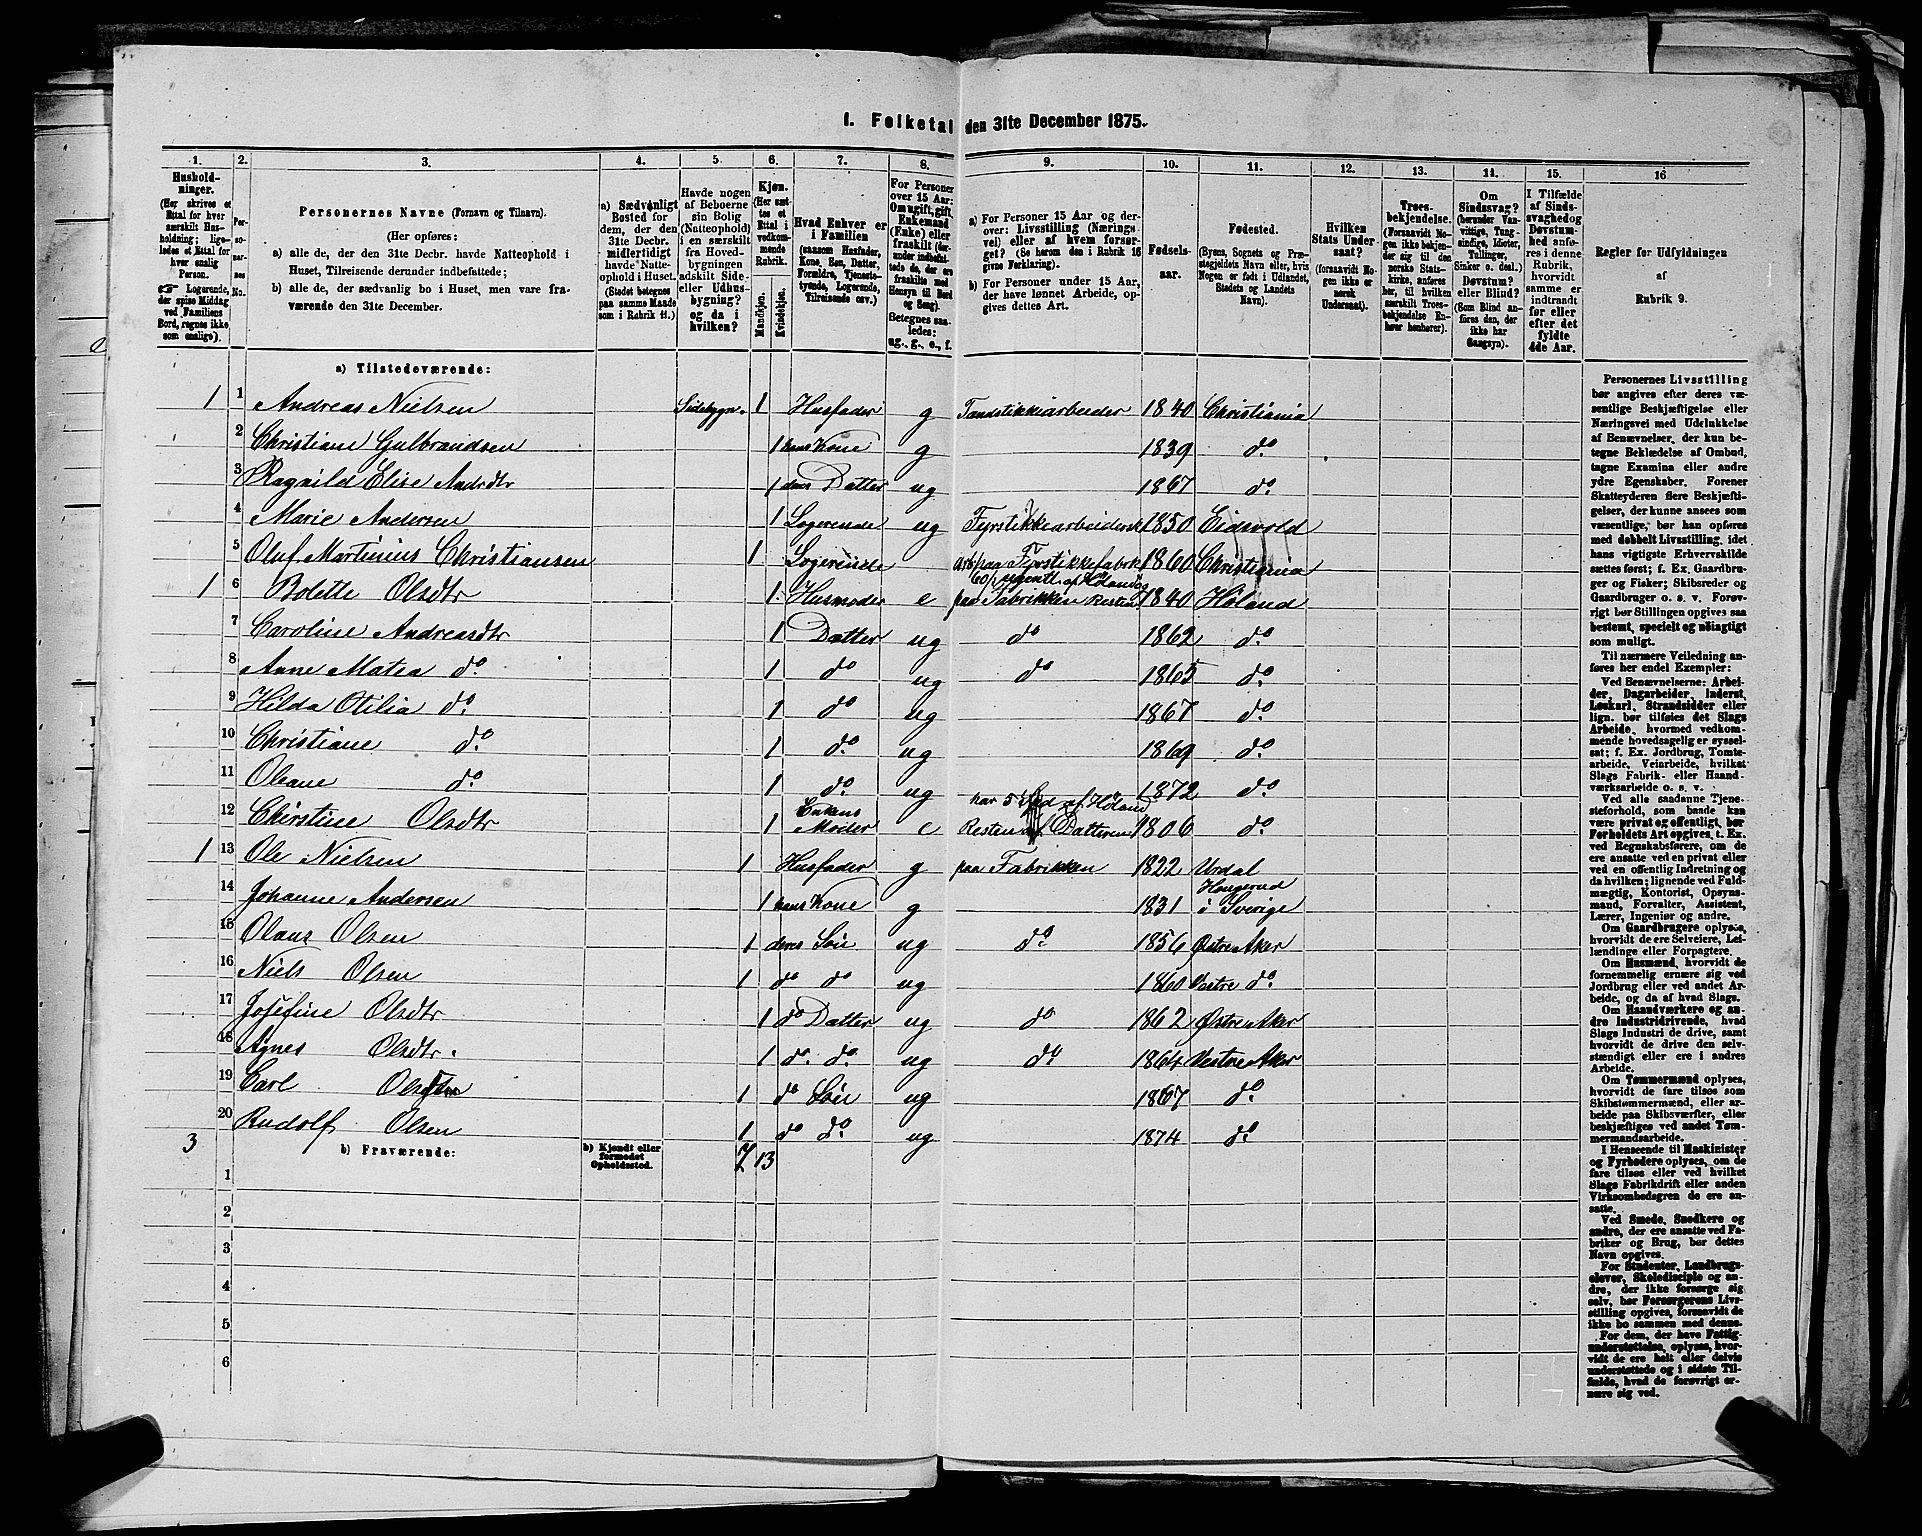 I. Folketal den 31te December 1875.
1. 2. 3. 4. 5. 6. 7. 8. 9. 10. 11. 12. 13. 14. 15. 16
Hushold-
ninger.
(Her skrives et
Ettal for hver
særskilt Hus-
holdning; lige-
ledes et Ettal for
hver enslig
Person.
☞ Logerende,
der spise Middag
ved Familiens
Bord, regnes ikke
som enslige).
Per-
so-
ner-
nes
No.
Personernes Navne (Fornavn og Tilnavn).
(Her opføres:
a) alle de, der den 31te Decbr. havde Natteophold i
Huset, Tilreisende derunder indbefattede;
b) alle de, der sædvanlig bo i Huset, men vare fra-
værende den 31te December.
a) Sædvanligt
Bosted for
dem, der den
31te Decbr.
midlertidigt
havde Natte-
ophold i Huset.
(Stedet betegnes
paa samme Maade
som i Rubrik 11.)
Havde nogen
af Beboerne
sin Bolig
(Natteophold)
i en særskilt
fra Hoved-
bygningen
adskilt Side-
eller Udhus-
bygning?
og da i
hvilken?
Kjøn.
(Her sæt-
tes et
Ettal i
vedkom-
mende
Rubrik.
Mandkjøn.
Kvindekjøn.
Hvad Enhver er
i Familien
(saasom Husfader,
Kone, Søn, Datter,
Forældre, Tjeneste-
tyende, Logerende,
Tilreisende osv.)
For Personer
over 15 Aar:
Om ugift, gift,
Enkemand
(Enke) eller
fraskilt (der-
under indbefat-
tede de, der ere
fraskilte med
Hensyn til Bord
og Seng).
Betegnes saa-
ledes:
ug., g., e., f.
a) For Personer 15 Aar og der-
over: Livsstilling (Nærings-
vei) eller af hvem forsør-
get? (Se herom den i Rubrik 16
givne Forklaring).
b) For Personer under 15 Aar,
der have lønnet Arbeide, op-
gives dettes Art.
Fødsels-
aar.
Fødested.
(Byens, Sognets og Præ-
stegjeldets Navn eller, hvis
Nogen er født i Udlandet,
Stedets og Landets
Navn).
Hvilken
Stats Under-
saat?
(forsaavidt No-
gen ikke er
norsk
Undersaat).
Troes-
bekjendelse.
(Forsaavidt No-
gen ikke bekjen-
der sig til den
norske Stats-
kirke, anføres
her, til hvilken
særskilt Troes-
bekjendelse En-
hver henhører).
Om
Sindssvag?
(herunder Van-
vittige, Tung-
sindige, Idioter,
Tullinger,
Sinker o. desl.)
Døvstum?
eller Blind?
(Som Blind an-
føres den, der
ikke har
Gangsyn).
I Tilfælde
af Sinds-
svaghed og
Døvstum-
hed anfø-
res i denne
Rubrik,
hvorvidt
samme er
indtrandt
før eller
efter det
fyldte
4de Aar.
Regler for Udfyldningen
af
Rubrik 9.
a) Tilstedeværende:
1 1 Andreas Nielsen Sidebygn. 1 Husfader g Tandstikkiarbeider 1840 Christiania
2 Christiane Gulbrandsen 1 hans Kone g 1839 do.
3 Ragnild Elise Andrdtr 1 deres Datter ug 1867 do.
4 Marie Andersen 1 Logerende ug Fyrstikkearbeiderske 1850 Eidsvold
5 Oluf Martinius Christiansen 1 Logerende arb. paa Fyrstikkefabrk 1860 Christiania
1 6 Bolette Olsdtr 1 Husmoder e paa Fabrikken Resten 1840 Høland
7 Caroline Andreasdtr 1 Datter ug do 1862 do
8 Anne Matea do. 1 do ug do 1865 do.
9 Hilda Otilia do. 1 do ug 1867 do.
10 Christiane do. 1 do. ug 1869 do.
11 Oleane do. 1 do. ug 1872 do.
12 Chirstine Olsdtr 1 Enkens Moder e har 5 af Høland Resten af Datteren 1806 do.
1 13 Ole Nielsen 1 Husfader g paa Fabrikken 1822 Urdal
14 Johanne Andersen 1 hans Kone g 1831 Hougerud i Sverige
15 Olaus Olsen 1 deres Søn ug do. 1856 Østre Aker
16 Niels Olsen 1 do do ug 1860 Vestre do.
17 Josefine Olsdtr 1 do Datter ug do 1862 Østre Aker
18 Agnes Olsdtr. 1 do. do. ug do. 1864 Vestre Aker
19 Carl Olsen 1 do Søn ug 1867 do.
20 Rudolf Olsen 1 do do. ug 1874 do.
3 b) Fraværende: b) Kjendt eller
formodet
Opholdssted. 7 13
1
2
3
4
5
6
Personernes Livsstilling
bør angives efter deres væ-
sentlige Beskjæftigelse eller
Næringsvei med Udelukkelse
af Benævnelser, der kun be-
tegne Beklædelse af Ombud,
tagne Examina eller andre
ydre Egenskaber. Forener
Skatteyderen flere Beskjæfti-
gelser, der kunne ansees som
væsentlige, bør han opføres
med dobbelt Livsstilling, idet
hans vigtigste Erhvervskilde
sættes først; f. Ex. Gaardbru-
ger og Fisker; Skibsreder og
Gaardbruger o. s. v. Forøv-
rigt bør Stillingen opgives saa
bestemt, specielt og nøiagtigt
som muligt.
Til nærmere Veiledning an-
føres her endel Exempler:
Ved Benævnelserne: Arbei-
der, Dagarbeider, Inderst,
Løskarl, Strandsidder eller
lign. bør tilføies det Slags
Arbeide, hvormed vedkom-
mende hovedsagelig er syssel-
sat; f. Ex. Jordbrug, Tomte-
arbeide, Veiarbeide, hvilket
Slags Fabrik- eller Haand-
værksarbeide o. s. v.
Ved alle saadanne Tjene-
steforhold, som baade kan
være privat og offentligt, bør
Forholdets Art opgives, t. Ex.
ved Regnskabsførere, om de
ere ansatte ved en privat eller
ved en offentlig Indretning og
da hvilken; lignende ved Fuld-
mægtig, Kontorist, Opsyns-
mand, Forvalter, Assistent,
Lærer, Ingeniør og andre.
Om Gaardbrugere oplyses,
hvorvidt de ere Selveiere, Lei-
lændinge eller Forpagtere.
Om Husmænd, hvorvidt de
fornemmelig ernære sig ved
Jordbrug eller ved andet Ar-
beide, og da af hvad Slags.
Om Haandværkere og an-
dre Industridrivende, hvad
Slags Industri de drive, samt
hvorvidt de drive den selv-
stændigt eller ere i andres
Arbeide.
Om Tømmermænd oplyses,
hvorvidt de fare tilsøs som
Skibstømmermænd, eller ar-
beide paa Skibsværfter, eller
beskjæftiges ved andet Tøm-
mermandsarbeide.
I Henseende til Maskinister
og Fyrbødere oplyses, om de
fare tilsøs eller ved hvilket
Slags Fabrikdrift eller anden
Virksomhedsgren de ere an-
satte.
Ved Smede, Snedkere og
andre, der ere ansatte ved Fa-
briker og Brug, bør dettes
Navn opgives.
For Studenter, Landbrugs-
elever, Skoledisciple og an-
dre, der ikke forsørge sig
selv, bør Forsørgerens Livs-
stilling opgives, forsaavidt de
ikke bo sammen med denne.
For dem, der have Fattig-
understøttelse, oplyses, hvor-
vidt de ere helt eller delvis
understøttede og i sidste Til-
fælde, hvad de forøvrigt er-
nære sig ved.